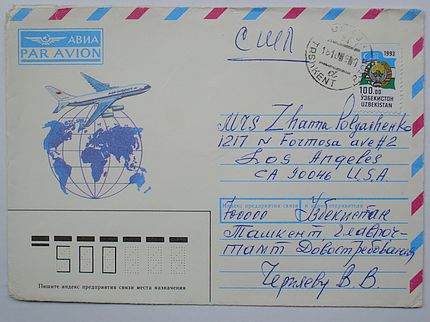 АВИА
PAR AVION
США
TASHKENT
1993
100.00
ЎЗБЕКИСТОН
UZBEKISTAN
MRS Zhanna Polyashenko
1217 N Formosa ave #2
Los Angeles
CA 90046 U.S.A
Индекс предприятия связи и адрес отправителя
700000 Узбекистан
Ташкент Главпоч-
тамт Довостребования
Черняеву В. В.
500
Пишите индекс предприятия связи места назначения